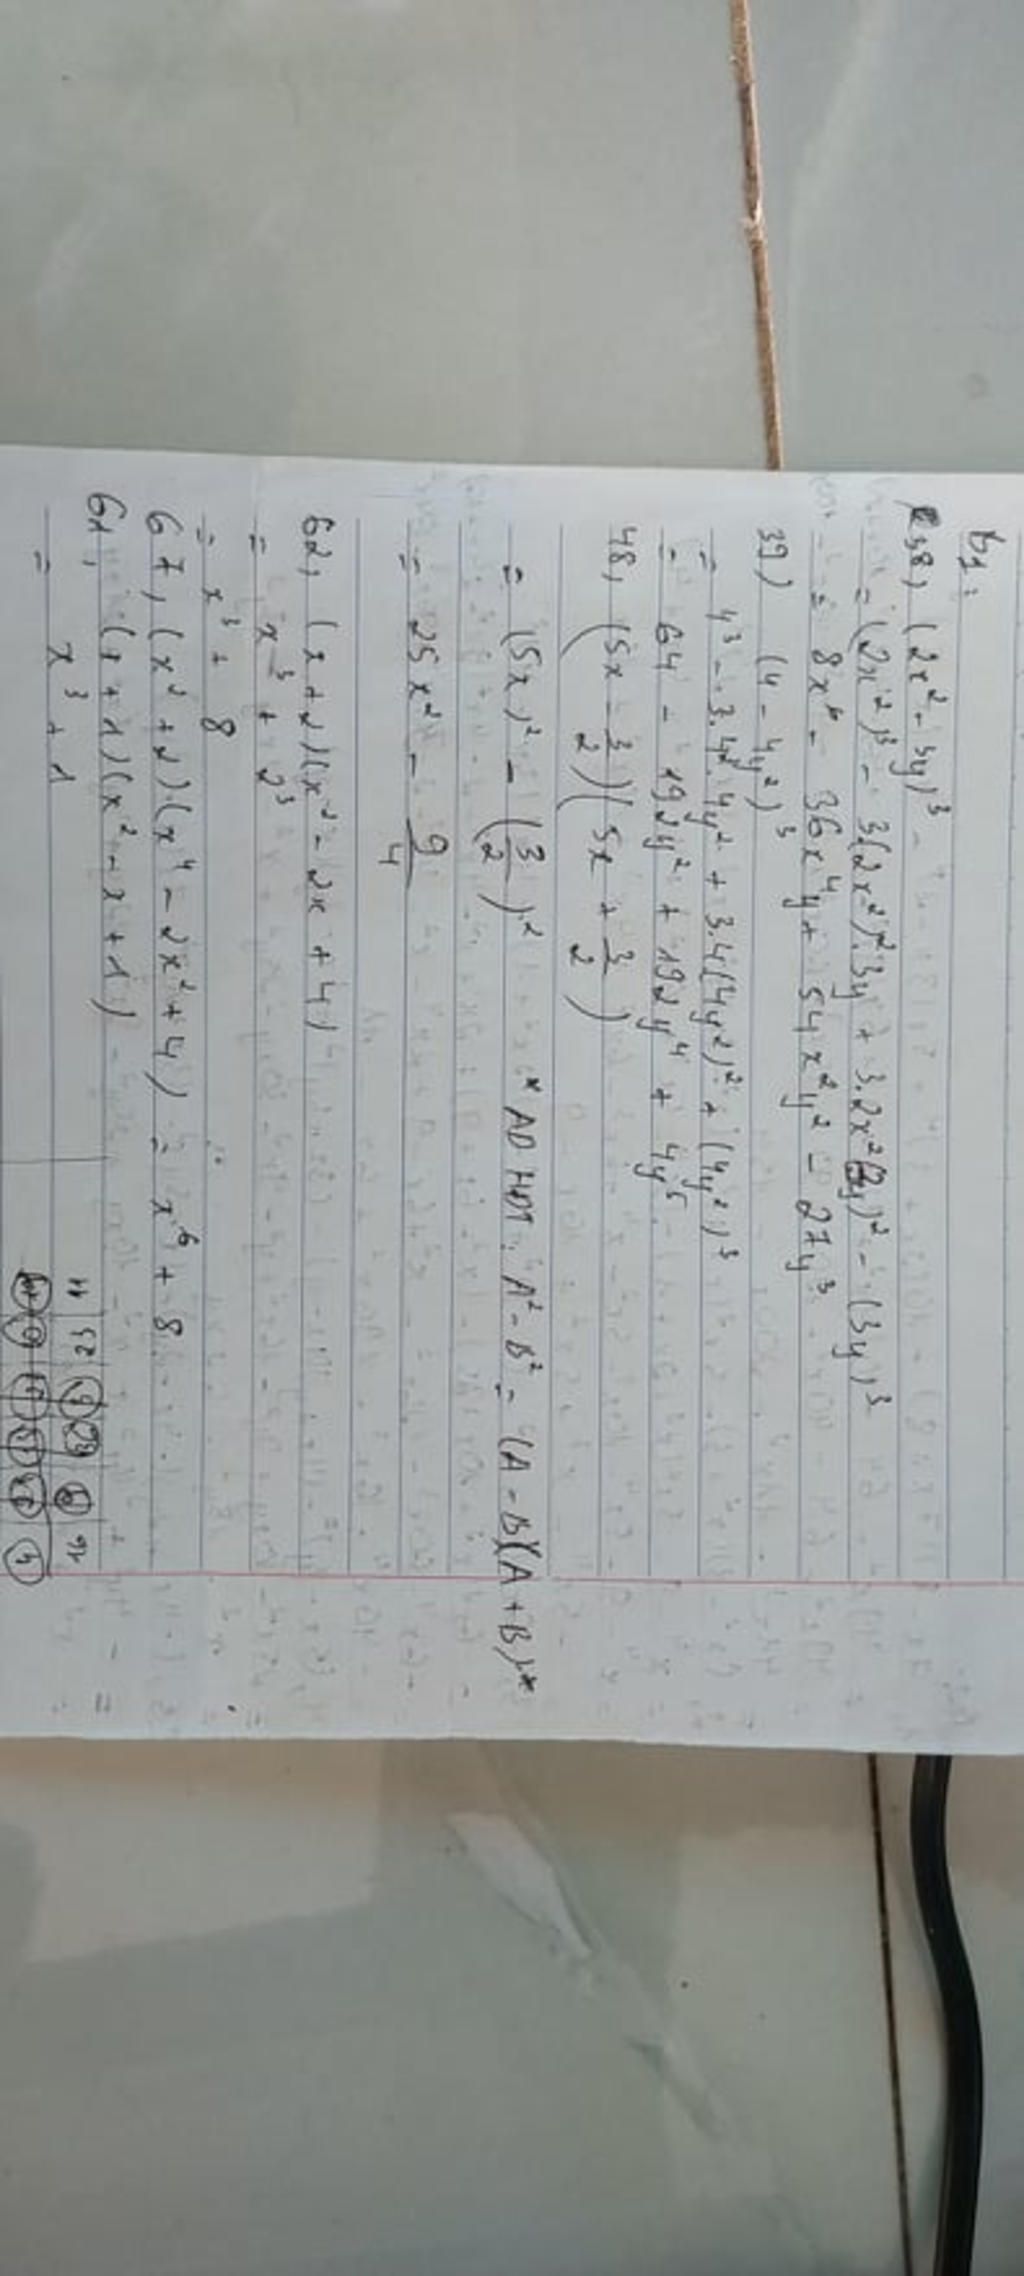 B1:
38, (2x² - 3y)³
= (2x²)³ - 3(2x²)².3y + 3.2x²(3y)² - (3y)³
= 8x⁶ - 36x⁴y + 54x²y² - 27y³
39) (4 - 4y²)³
= 4³ - 3.4².4y² + 3.4(4y²)² + (4y²)³
= 64 - 192y² + 192y⁴ + 4y⁵
48, (5x - 3/2)(5x + 3/2)
= (5x)² - (3/2)² * AD HĐT: A² - B² = (A - B)(A + B)*
= 25x² - 9/4
62, (x + 2)(x² - 2x + 4)
= x³ + 2³
= x³ + 8
67, (x² + 2)(x⁴ - 2x² + 4) = x⁶ + 8
61, (x + 1)(x² - x + 1)
= x³ + 1
11 23 16
4